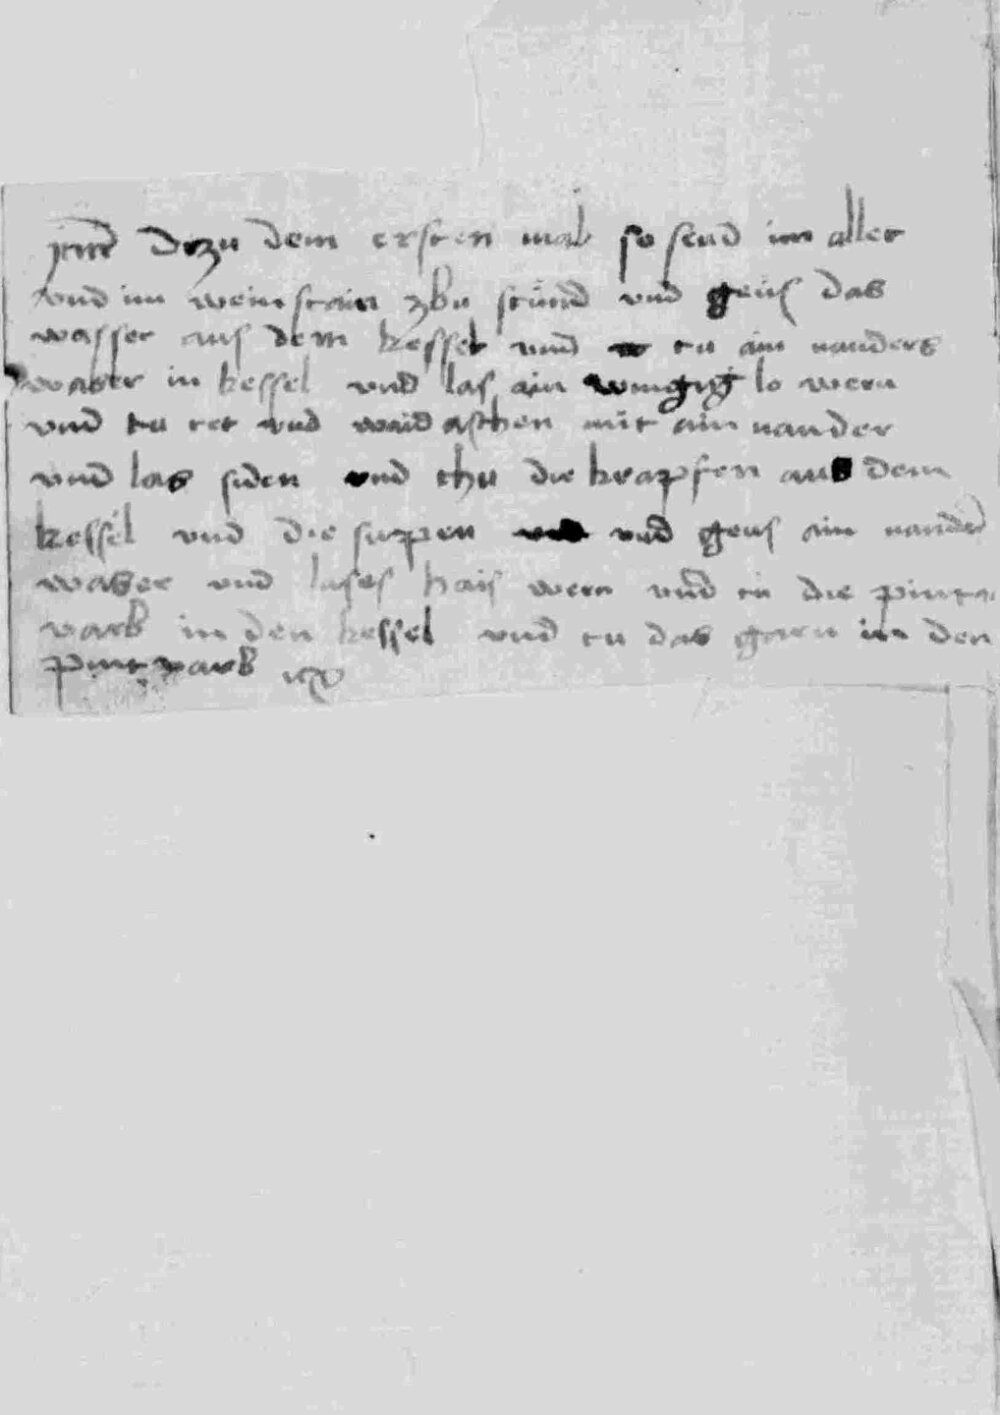 Jtem dezu dem ersten mal so seud im aller
vnd im weinstain zbu stund vnd geus das
wasser aus dem kessel vnnd tu ain nanders
waser in kessel vnd las ain wingig lo wern
vnd tu ret vnd waid aschen mit ain nander
vnnd las siden vnd thu die krapfen aus dem
kessel vnd die suppen vnd geus ain nander
waser vnd lases hais wern vnd tu die pint
varb in den kessel vnd tu das garn in den
pint varb